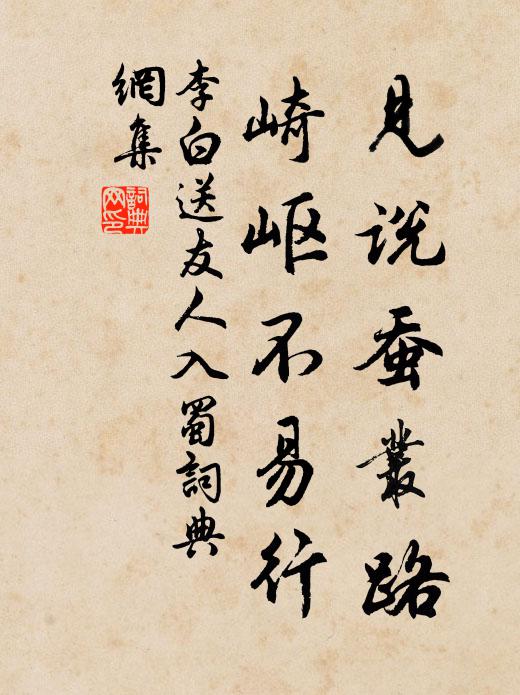 見説蚕叢路
崎岖不易行
李白送友人入蜀詞典
網集
詞典
网印